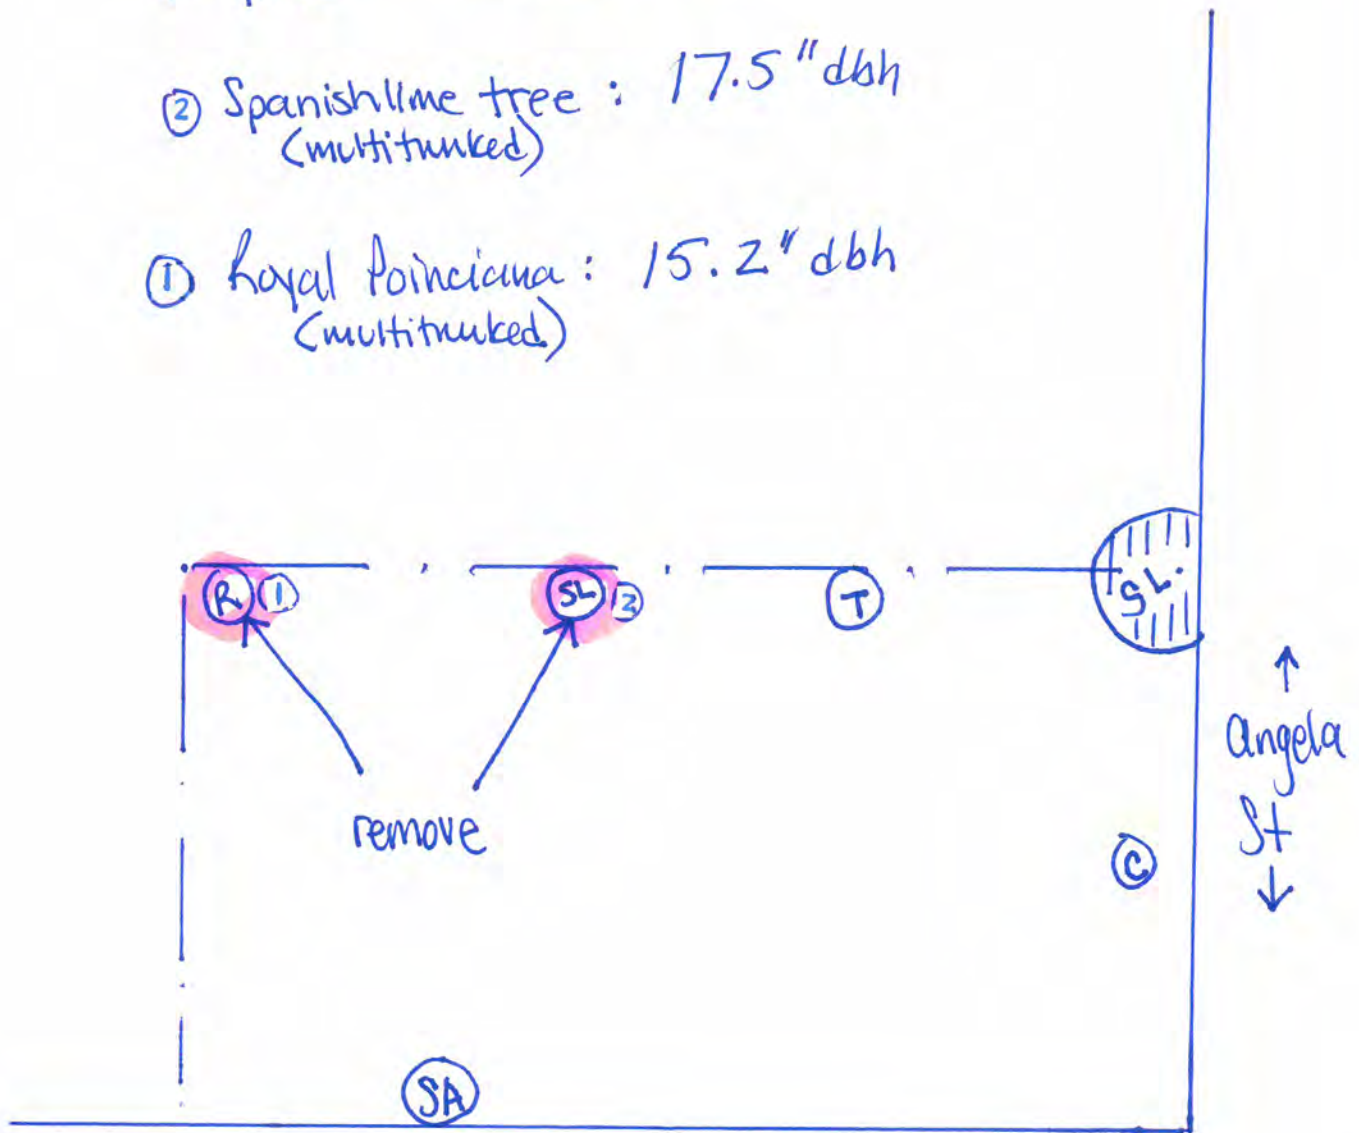 ② Spanish lime tree : 17.5" dbh
(multitrunked)
① Royal Poinciana : 15.2" dbh
(multitrunked)
R ① SL ② T SL
remove
Angela
St
C
SA